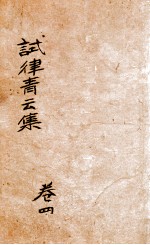 試律青云集
卷四